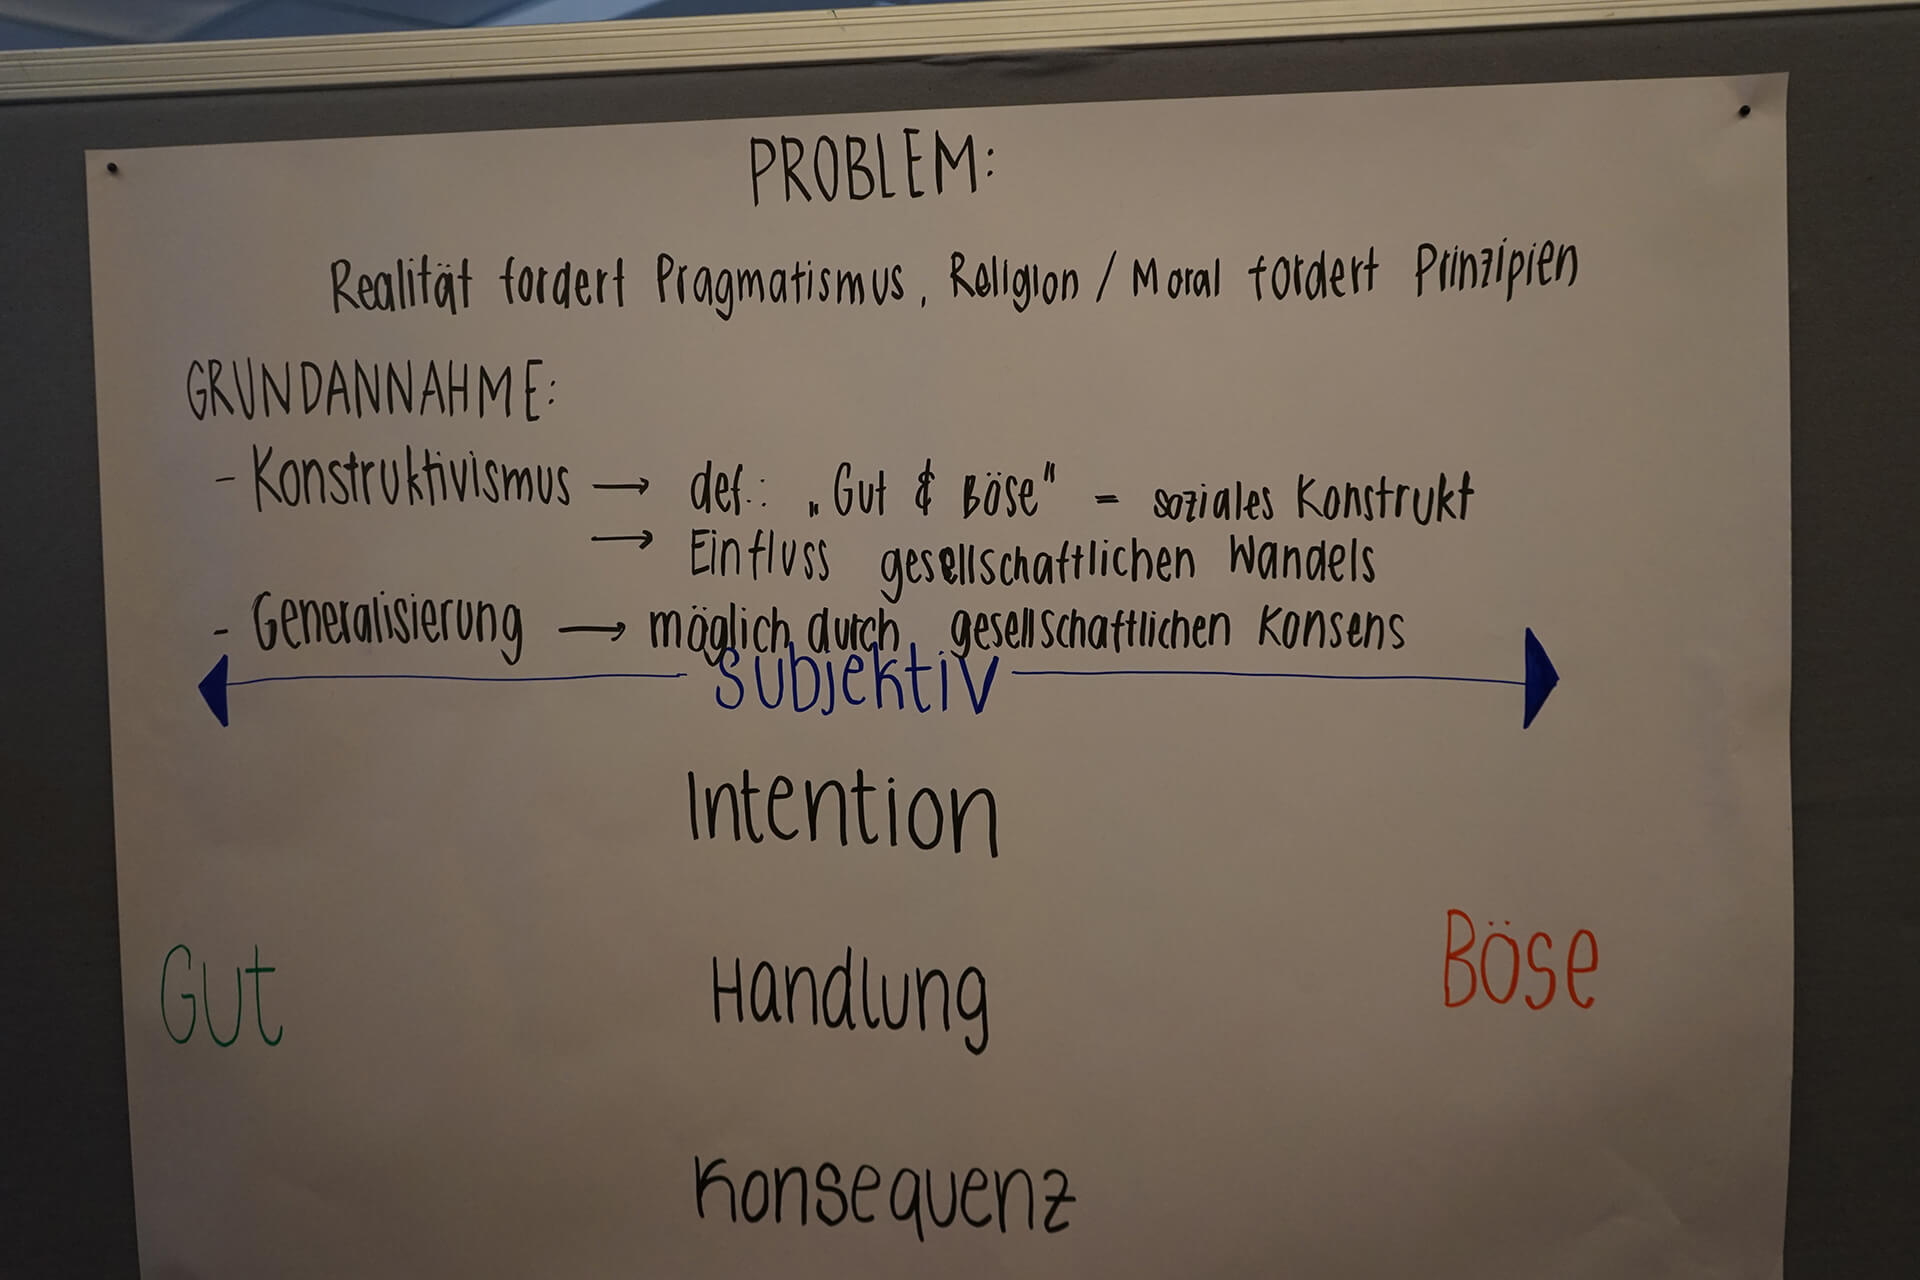 PROBLEM:
Realität fordert Pragmatismus, Religion / Moral fordert Prinzipien
GRUNDANNAHME:
- Konstruktivismus → def.: „Gut & Böse" = soziales Konstrukt
→ Einfluss gesellschaftlichen Wandels
- Generalisierung → möglich durch gesellschaftlichen Konsens
subjektiv
Intention
Gut Handlung Böse
Konsequenz